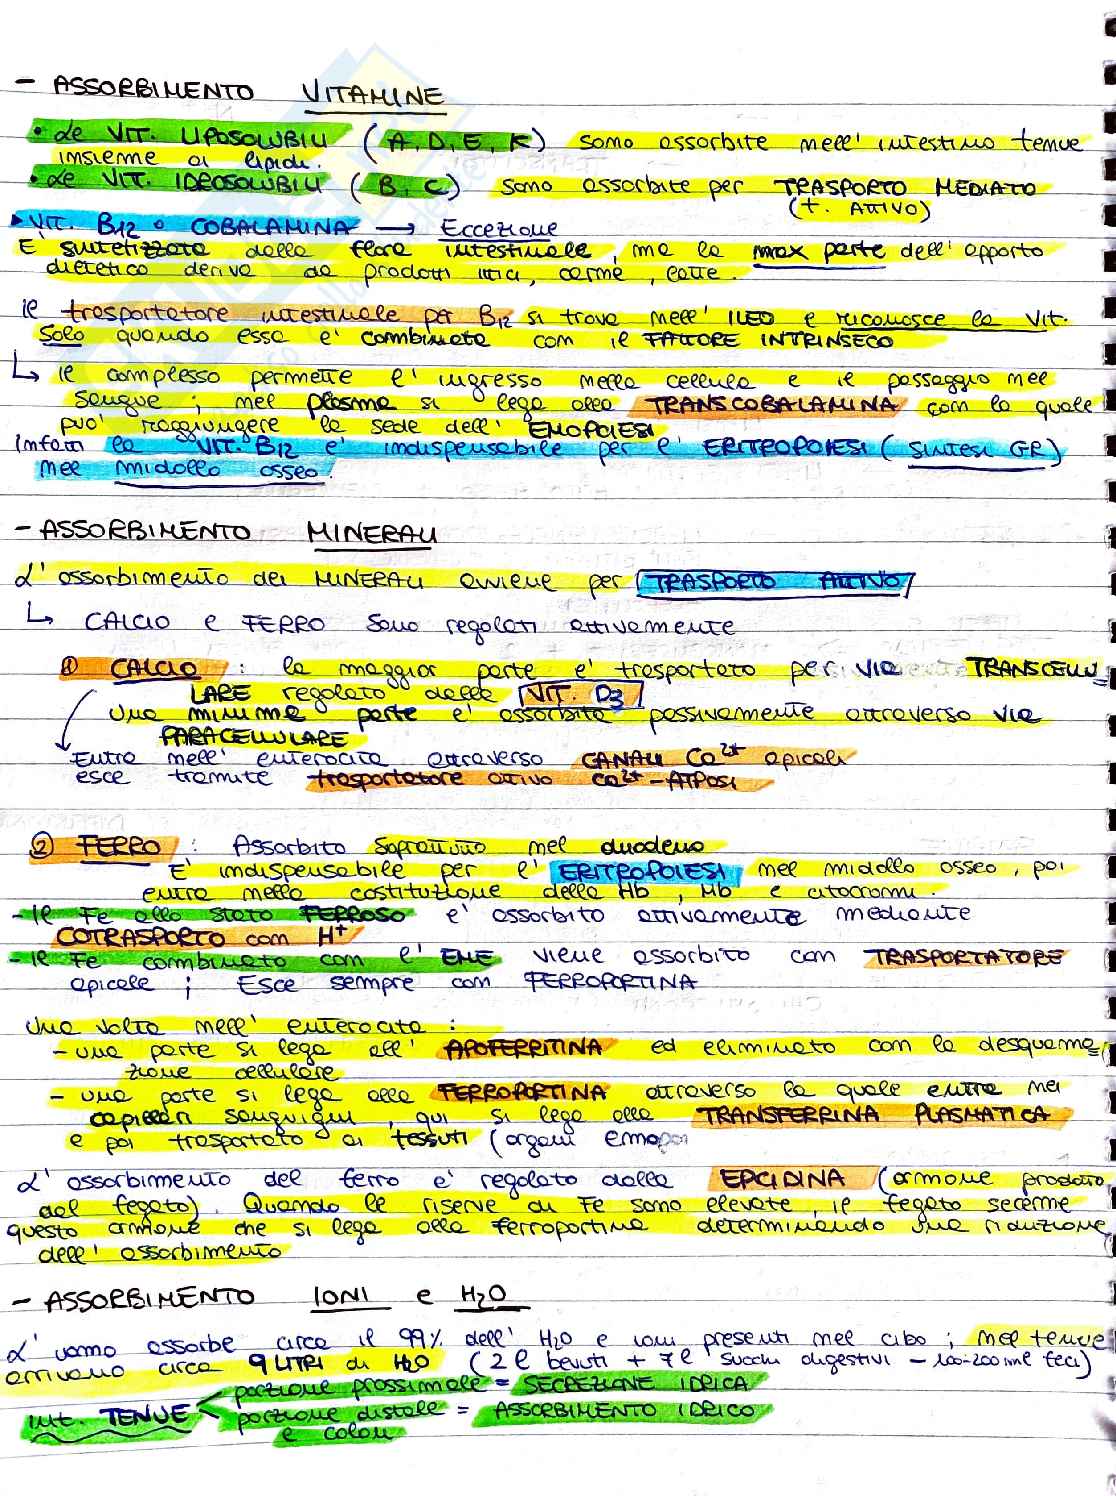 - ASSORBIMENTO VITAMINE
• Le VIT. LIPOSOLUBILI (A, D, E, K) sono assorbite nell'intestino tenue
insieme ai lipidi.
• Le VIT. IDROSOLUBILI (B, C) sono assorbite per TRASPORTO MEDIATO
(t. ATTIVO)
▸ VIT. B12 o COBALAMINA → Eccezione
E' sintetizzata dalla flora intestinale, ma la max parte dell'apporto
dietetico deriva da prodotti ittici, carne, latte.
il trasportatore intestinale per B12 si trova nell'ILEO e riconosce la Vit.
Solo quando essa è combinata con il FATTORE INTRINSECO
↳ il complesso permette l'ingresso nella cellula e il passaggio nel
sangue; nel plasma si lega alla TRANSCOBALAMINA con la quale
può raggiungere la sede dell'EMOPOIESI
Infatti la VIT. B12 è indispensabile per l'ERITROPOIESI (SINTESI GR)
nel midollo osseo.
- ASSORBIMENTO MINERALI
L'assorbimento dei MINERALI avviene per TRASPORTO ATTIVO
↳ CALCIO e FERRO sono regolati attivamente
① CALCIO : la maggior parte è trasportato per via TRANSCELLU
LARE regolato dalla VIT. D3
Una minima parte è assorbita passivamente attraverso via
PARACELLULARE
Entra nell'enterocita attraverso CANALI Ca2+ apicali
esce tramite trasportatore attivo Ca2+-ATPasi
② FERRO : Assorbito soprattutto nel duodeno
E' indispensabile per l'ERITROPOIESI nel midollo osseo, poi
entra nella costituzione della Hb, Mb e citocromi.
- Il Fe allo stato FERROSO è assorbito attivamente mediante
COTRASPORTO con H+
- il Fe combinato con l'EME viene assorbito con TRASPORTATORE
apicale; Esce sempre con FERROPORTINA
Una volta nell'enterocita :
- una parte si lega all'APOFERRITINA ed eliminato con la desquama=
zione cellulare
- una parte si lega alla FERROPORTINA attraverso la quale entra nei
capillari sanguigni, qui si lega alla TRANSFERRINA PLASMATICA
e poi trasportato ai tessuti (organi emopoi
L'assorbimento del ferro è regolato dalla EPCIDINA (ormone prodotto
dal fegato). Quando le riserve di Fe sono elevate, il fegato secerne
questo ormone che si lega alla ferroportina determinando una riduzione
dell'assorbimento
- ASSORBIMENTO IONI e H2O
L'uomo assorbe circa il 99% dell'H2O e ioni presenti nel cibo; nel tenue
arrivano circa 9 LITRI di H2O (2l bevuti + 7l succhi digestivi - 100-200 ml feci)
int. TENUE < porzione prossimale = SECREZIONE IDRICA
porzione distale = ASSORBIMENTO IDRICO
e colon